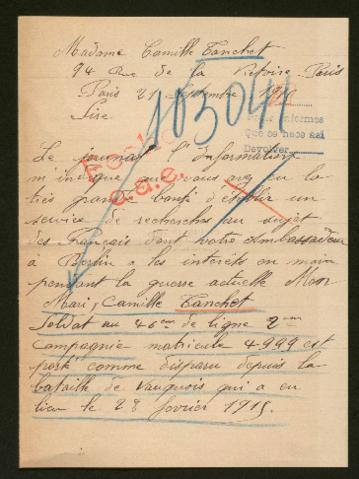 Madame Camille Tanchot
94 Rue de la Victoire Paris
Paris 21 Septembre
Sire
103044
Que se hace así
Devolver
Le journal l'Information
m'indique que vous avez eu la
très grande bonté d'établir un
service de recherches au sujet
des Français dont votre Ambassadeur
à Berlin a les intérêts en main
pendant la guerre actuelle Mon
Mari, Camille Tanchot
Soldat au 46eme de ligne 2me
Compagnie matricule 4.999 est
porté comme disparu depuis la
bataille de Vauquois qui a eu
lieu le 28 fevrier 1915.